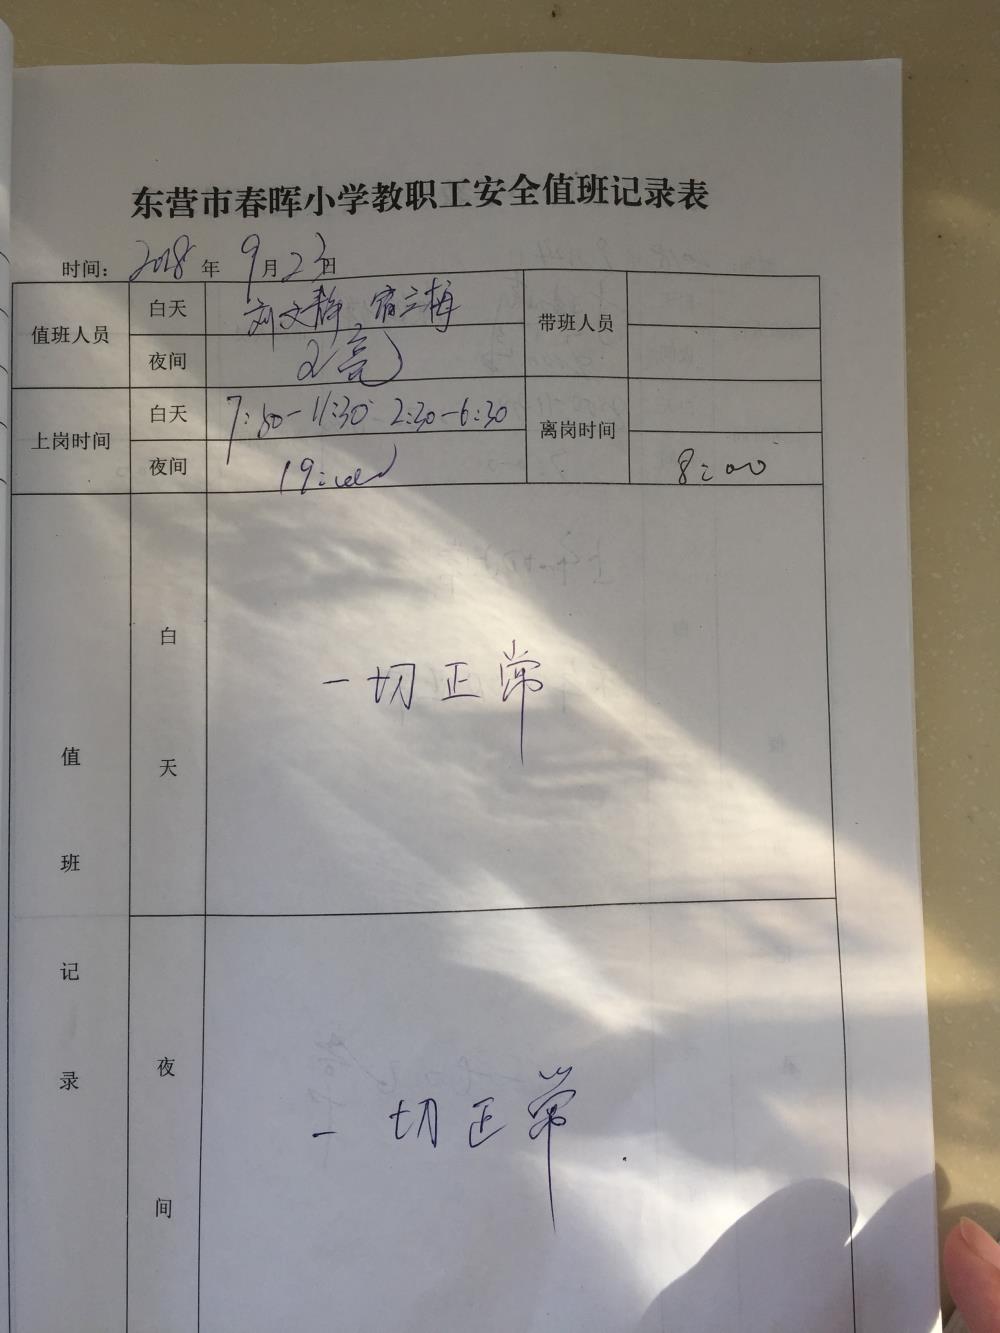 东营市春晖小学教职工安全值班记录表
时间：2018年 9月23日
值班人员 白天 刘文静、宿立梅 带班人员
夜间
上岗时间 白天 7:50-11:30 2:30-6:30 离岗时间
夜间 19:00 8:00
值班记录
白天 一切正常
夜间 一切正常